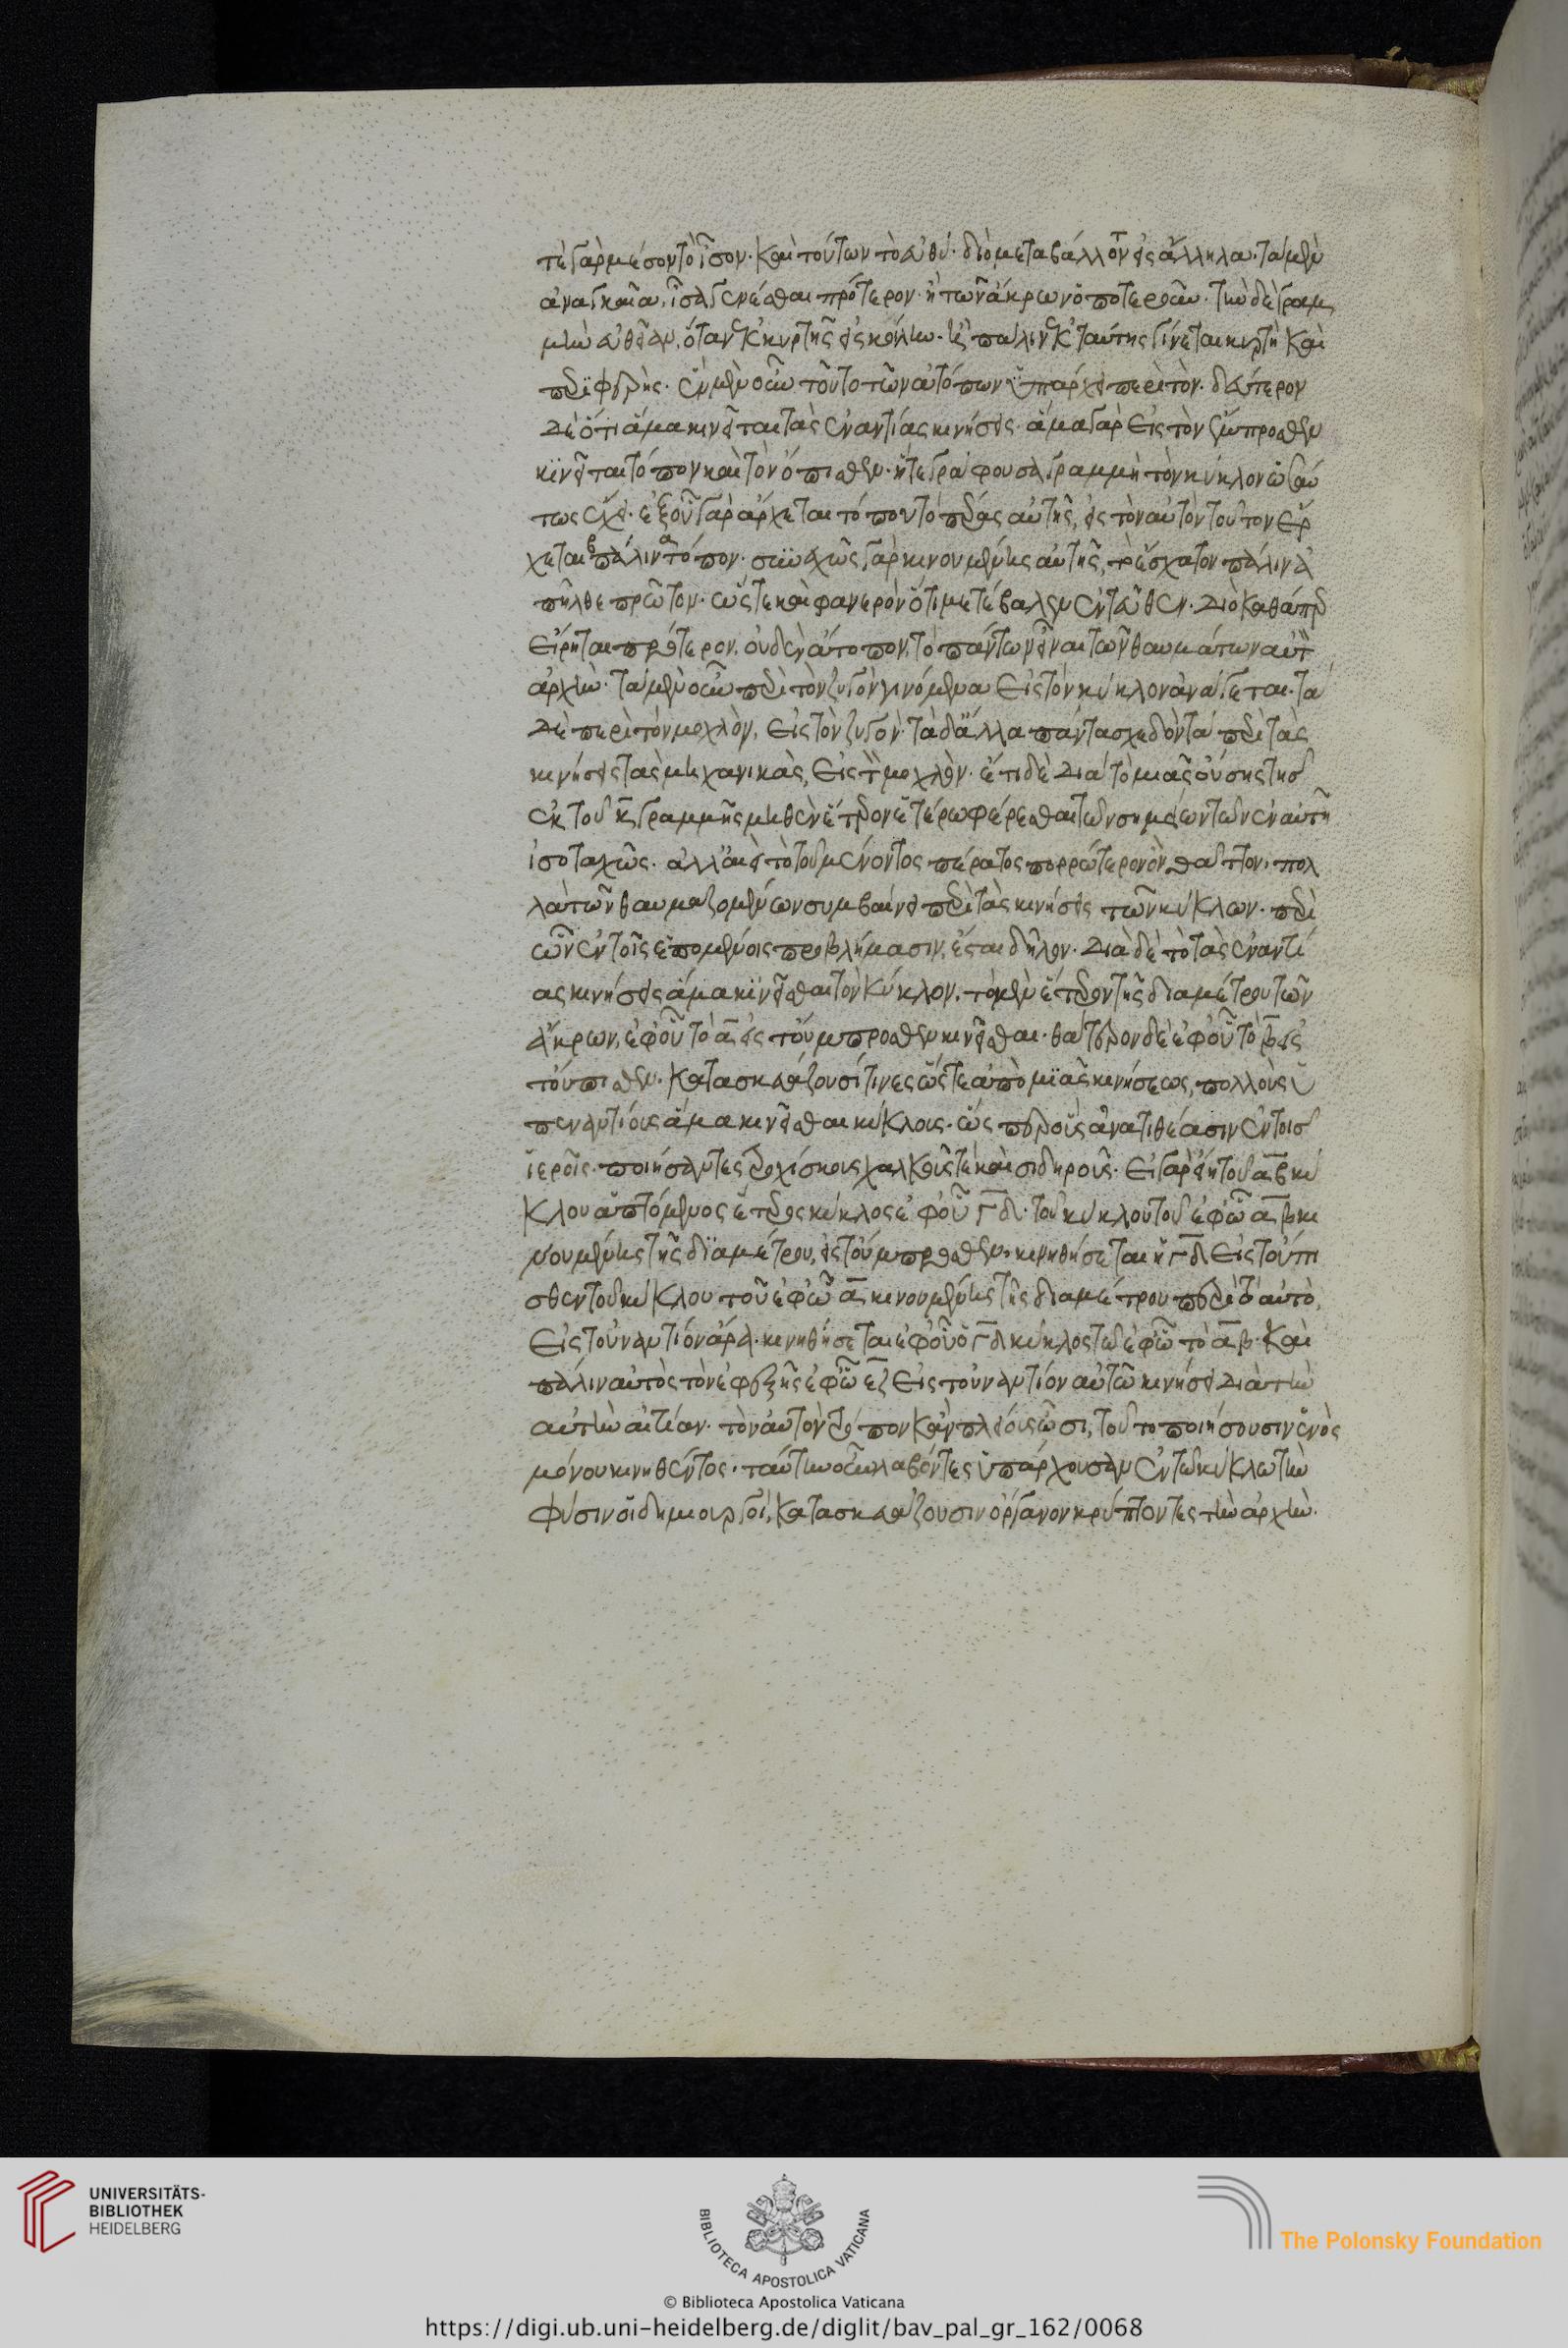 τὲ γὰρ μέσον τὸ ἴσον. καὶ τούτων τὸ εὐθύ. διὸ μεταβάλλοντ εἰς ἄλληλα. τὰ μὲν
ἀναγκαῖα, ἴσα γενέσθαι πρότερον. ἢ τῶν ἄκρων ὁποτεραοῦν. τὴν δὲ γραμ
μὴν εὐθεῖαν, ὅταν ἐκ κυρτῆς εἰς κοίλην. ἢ πάλιν ἐκ ταύτης γίνεται κυρτὴ καὶ
περϊφερής. ἓν μὲν οὖν τοῦτο τῶν ἀτόπων ὑπάρχει περὶ τὸν. δεύτερον
δὲ ὅτι ἅμα κινεῖται τὰς ἐναντίας κινήσεις. ἅμα γὰρ εἰς τὸν ἔμπροσθεν
κϊνεῖται τόπον καὶ τὸν ὄπισθεν. ἥ τε γράφουσα γραμμὴ τὸν κύκλον ὡσαύ
τως ἔχει. ἐξ οὗ γὰρ ἄρχεται τόπου τὸ πέρας αὐτῆς, εἰς τὸν αὐτὸν τοῦτον ἔρ
χεται β πάλιν α τόπον. συνεχῶς γὰρ κινουμένης αὐτῆς, τὸ ἔσχατον πάλιν ἀ
πῆλθε πρῶτον. ὥστε καὶ φανερὸν ὅτι μετέβαλεν ἐνταῦθεν. διὸ καθάπερ
εἴρηται πρότερον, οὐδὲν ἄτοπον, τὸ πάντων εἶναι τῶν θαυμάτων αὐτ
ἀρχήν. τὰ μὲν οὖν περὶ τὸν ζυγὸν γινόμενα εἰς τὸν κύκλον ἀνάγεται. τὰ
δὲ περὶ τὸν μοχλὸν, εἰς τὸν ζυγόν. τὰ δ' ἄλλα πάντα σχεδὸν τὰ περὶ τὰς
κινήσεις τὰς μηχανικὰς, εἰς τὸν μοχλόν. ἔτι δὲ διὰ τὸ μιᾶς οὔσης τῆς
ἐκ τοῦ κ γραμμῆς μηθὲν ἕτερον ἑτέρω φέρεσθαι τῶν σημείων τῶν ἐν αὐτῆ
ἰσοταχῶς. ἀλλ' ἀεὶ τὸ τοῦ μένοντος πέρατος πορρώτερον ὂν θᾶττον, πολ
λὰ τῶν θαυμαζομένων συμβαίνει περὶ τὰς κινήσεις τῶν κύκλων. περὶ
ὧν ἐν τοῖς ἑπομένοις προβλήμασιν, ἔσται δῆλον. διὰ δὲ τὸ τὰς ἐναντί
ας κινήσεις ἅμα κϊνεῖσθαι τὸν κύκλον, τὸ μὲν ἕτερον τῆς διαμέτρου τῶν
ἄκρων, ἐφ' οὗ τὸ α εἰς τοὔμπροσθεν κινεῖσθαι. θάτερον δὲ ἐφ' οὗ τὸ β εἰς
τοὔπισθεν. κατασκευάζουσί τινες ὥστε ἀπὸ μϊᾶς κινήσεως, πολλοὺς ὑ
πεναντίους ἅμα κινεῖσθαι κύκλους. ὥσπερ οὓς ἀνατιθέασιν ἐν τοῖς
ἱεροῖς. ποιήσαντες τροχίσκους χαλκοῦς τε καὶ σιδηροῦς. εἰ γὰρ εἴη τοῦ αβ κύ
κλου ἁπτόμενος ἕτερος κύκλος ἐφ' οὗ γδ. τοῦ κύκλου τοῦ ἐφ' ὧ αβ κι
νουμένης τῆς δϊαμέτρου, εἰς τοὔμπροσθεν, κινηθήσεται ἡ γδ εἰς τοὔπι
σθεν τοῦ κύκλου τοῦ ἐφ' ὧ α κινουμένης τῆς διαμέτρου περὶ τὸ αὐτὸ,
εἰς τοὐναντίον ἄρα. κινηθήσεται ἐφ' οὗ ὁ γδ κύκλος τῶ ἐφ' ὧ τὸ αβ. καὶ
πάλιν αὐτὸς τὸν ἐφεξῆς ἐφ' ὧ εζ εἰς τοὐναντίον αὐτῶ κινήσει διὰ τὴν
αὐτὴν αἰτίαν. τὸν αὐτὸν τρόπον κἂν πλείους ὦσι, τοῦτο ποιήσουσιν ἑνὸς
μόνου κινηθέντος. ταύτην οὖν λαβόντες ὑπάρχουσαν ἐν τῶ κύκλω τὴν
φύσιν οἱ δημιουργοὶ, κατασκευάζουσιν ὄργανον κρύπτοντες τὴν ἀρχήν.
UNIVERSITÄTS-
BIBLIOTHEK
HEIDELBERG
BIBLIOTECA APOSTOLICA VATICANA
The Polonsky Foundation
© Biblioteca Apostolica Vaticana
https://digi.ub.uni-heidelberg.de/diglit/bav_pal_gr_162/0068